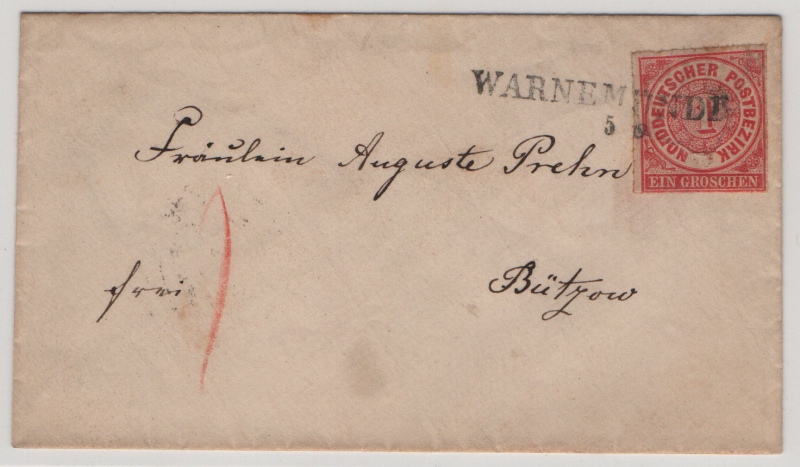 WARNEMÜNDE
5
NORDDEUTSCHER POSTBEZIRK
1
EIN GROSCHEN
Fräulein Auguste Prehn
frei
Bützow